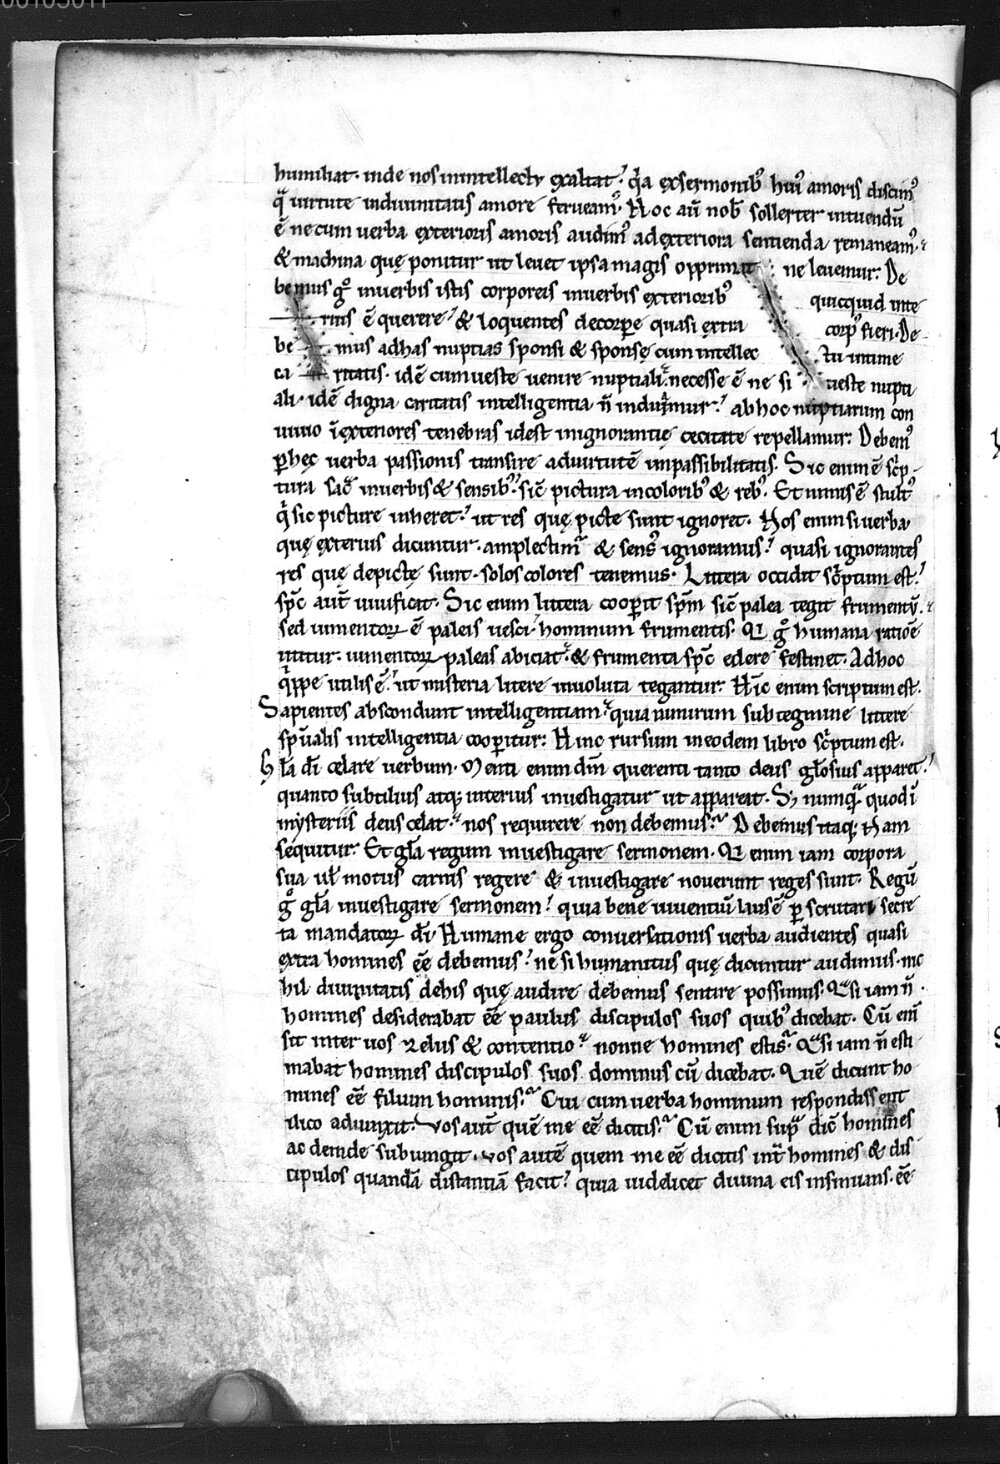 humiliat. inde nos inintellectu exaltat. q̇a exsermonib' hui' amoris discim'
q̇ virtute indiuinitatis amore ferueam'. Hoc aū nob̄ sollerter intuendū
ē necum uerba exterioris amoris audim' adexteriora sentienda remaneam'.
& machina quę ponitur ut leuet ipsa magis opprimat ne leuemur. De
bemus g° inuerbis istis corporeis inuerbis exteriorib' quicquid inte
rius ē querere & loquentes decorpe quasi extra corp' fieri. De
be mus adhas nuptias sponsi & sponsę cum intellec tu intime
ca ritatis. idē cumueste uenire nuptiali. necesse ē ne si ueste nupti
ali. idē digna caritatis intelligentia n̄ induimur. ab hoc nuptiarum con
uiuio īexteriores tenebras idest inignorantię cecitate repellamur. Debem'
ꝑhec uerba passionis transire aduirtutē impassibilitatis. Sic enim ē sc̄p
tura sac̄ inuerbis & sensib' sic̄ pictura incolorib' & reb'. Et nimis ē stult'
q̇ sic picture inheret. ut res quę picte sunt ignoret. Nos enim si uerba
quę exterius dicuntur. amplectim' & sens' ignoramus. quasi ignorantes
res quę depictę sunt. solos colores tenemus. Littera occidit sc̄ptum est.
sp̄c aut̄ uiuificat. Sic enim littera cooperit sp̄m sic̄ palea tegit frumentū.
sed iumentoꝝ ē paleis uesci. hominum frumentis. Qi g° humana ratiōe
utitur. iumentoꝝ paleas abiciat. & frumenta sp̄c edere festinet. Adhoc
q̇ppe utilis ē. ut misteria litere inuoluta tegantur. Hīc enim scriptum est.
Sapientes abscondunt intelligentiam. quia nimirum sub tegmine littere
sp̄ualis intelligentia cooperitur. Hinc rursum ineodem libro sc̄ptum est.
Gl̄a dī celare uerbum. Menti enim dm̄ querenti tanto deus gl̄osius apparet.
quanto subtilius atq; interius inuestigatur ut appareat. S; numq̇ quod ī
mysteriis deus celat. nos requirere non debemus. Debemus itaq;. Nam
sequitur. Et gl̄a regum inuestigare sermonem. Qi enim iam corpora
sua ul̄ motus carnis regere & inuestigare nouerunt reges sunt. Regū
g° gl̄a inuestigare sermonem. quia bene uiuentiū laus ē perscrutari secre
ta mandatoꝝ dī. Humane ergo conuersationis uerba audientes quasi
extra homines ēē debemus. ne si humanitus quę dicuntur audimus. nic
hil diuinitatis dehis quę audire debemus sentire possimus. Qsi iam n̄
homines desiderabat ēē paulus discipulos suos quib' dicebat. Cū em̄
sit inter uos zelus & contentio. nonne homines estis. Qsi iam n̄ esti
mabat homines discipulos suos dominus cū dicebat. Quē dicunt ho
mines ēē filium hominis. Cui cum uerba hominum respondissent
ilico adiunxit. Vos aut̄ quē me ēē dicitis. Cū enim sup̄ dic̄ homines
ac deinde subiungit. uos autē quem me ēē dicitis int̄ homines & dis
cipulos quandā distantiā facit. quia uidelicet diuina eis insinuans. ēē